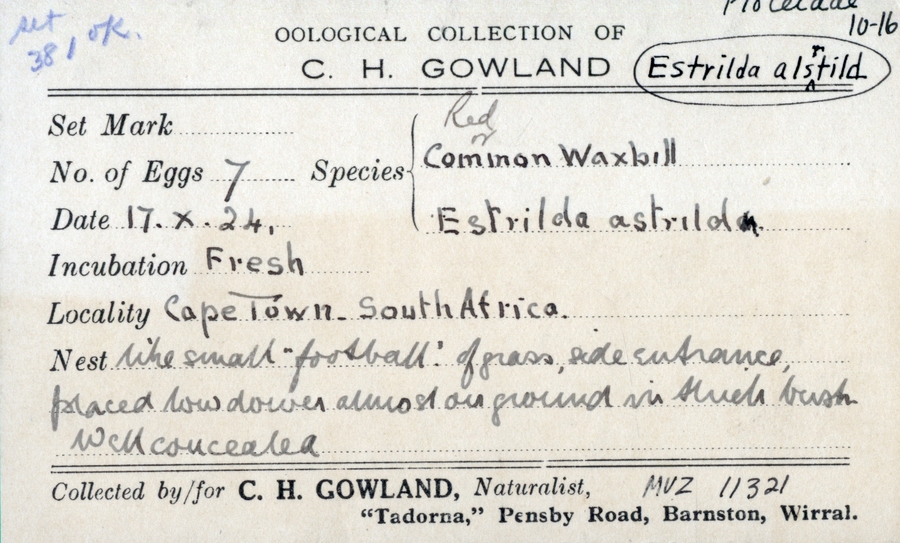 set
38 / ok.
10-16
OOLOGICAL COLLECTION OF
C. H. GOWLAND
Estrilda alstrild
Set Mark
Red
or
No. of Eggs 7 Species Common Waxbill
Date 17. X. 24. Estrilda astrilda
Incubation Fresh
Locality Cape Town - South Africa.
Nest like small "football" of grass, side entrance,
placed low down almost on ground in thick bush
Well concealed
Collected by/for C. H. GOWLAND, Naturalist, MVZ 11321
"Tadorna," Pensby Road, Barnston, Wirral.